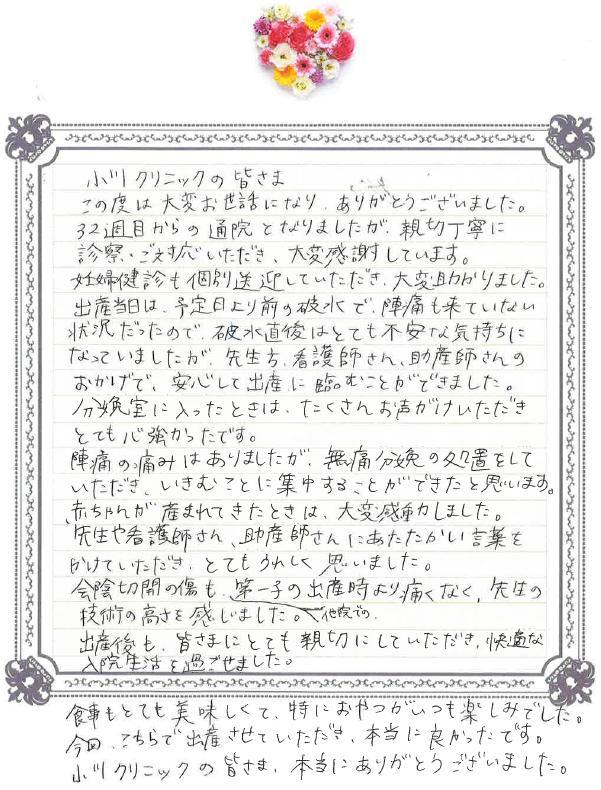 小川クリニックの皆さま
この度は大変お世話になり、ありがとうございました。
32週目からの通院となりましたが、親切丁寧に
診察・ご対応いただき、大変感謝しています。
妊婦健診も個別送迎していただき、大変助かりました。
出産当日は、予定日より前の破水で、陣痛も来ていない
状況だったので、破水直後はとても不安な気持ちに
なっていましたが、先生方、看護師さん、助産師さんの
おかげで、安心して出産に臨むことができました。
分娩室に入ったときは、たくさんお声がけいただき
とても心強かったです。
陣痛の痛みはありましたが、無痛分娩の処置をして
いただき、いきむことに集中することができたと思います。
赤ちゃんが産まれてきたときは、大変感動しました。
先生や看護師さん、助産師さんにあたたかい言葉を
かけていただき、とてもうれしく思いました。
会陰切開の傷も、第一子の出産時より痛くなく、先生の
技術の高さを感じました。 他院での
出産後も、皆さまにとても親切にしていただき、快適な
入院生活を過ごせました。
食事もとても美味しくて、特におやつがいつも楽しみでした。
今回、こちらで出産させていただき、本当に良かったです。
小川クリニックの皆さま、本当にありがとうございました。